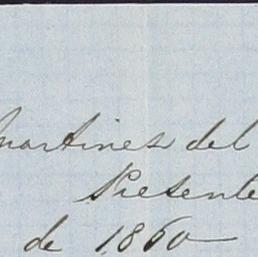 martines del
Presente
de 1860